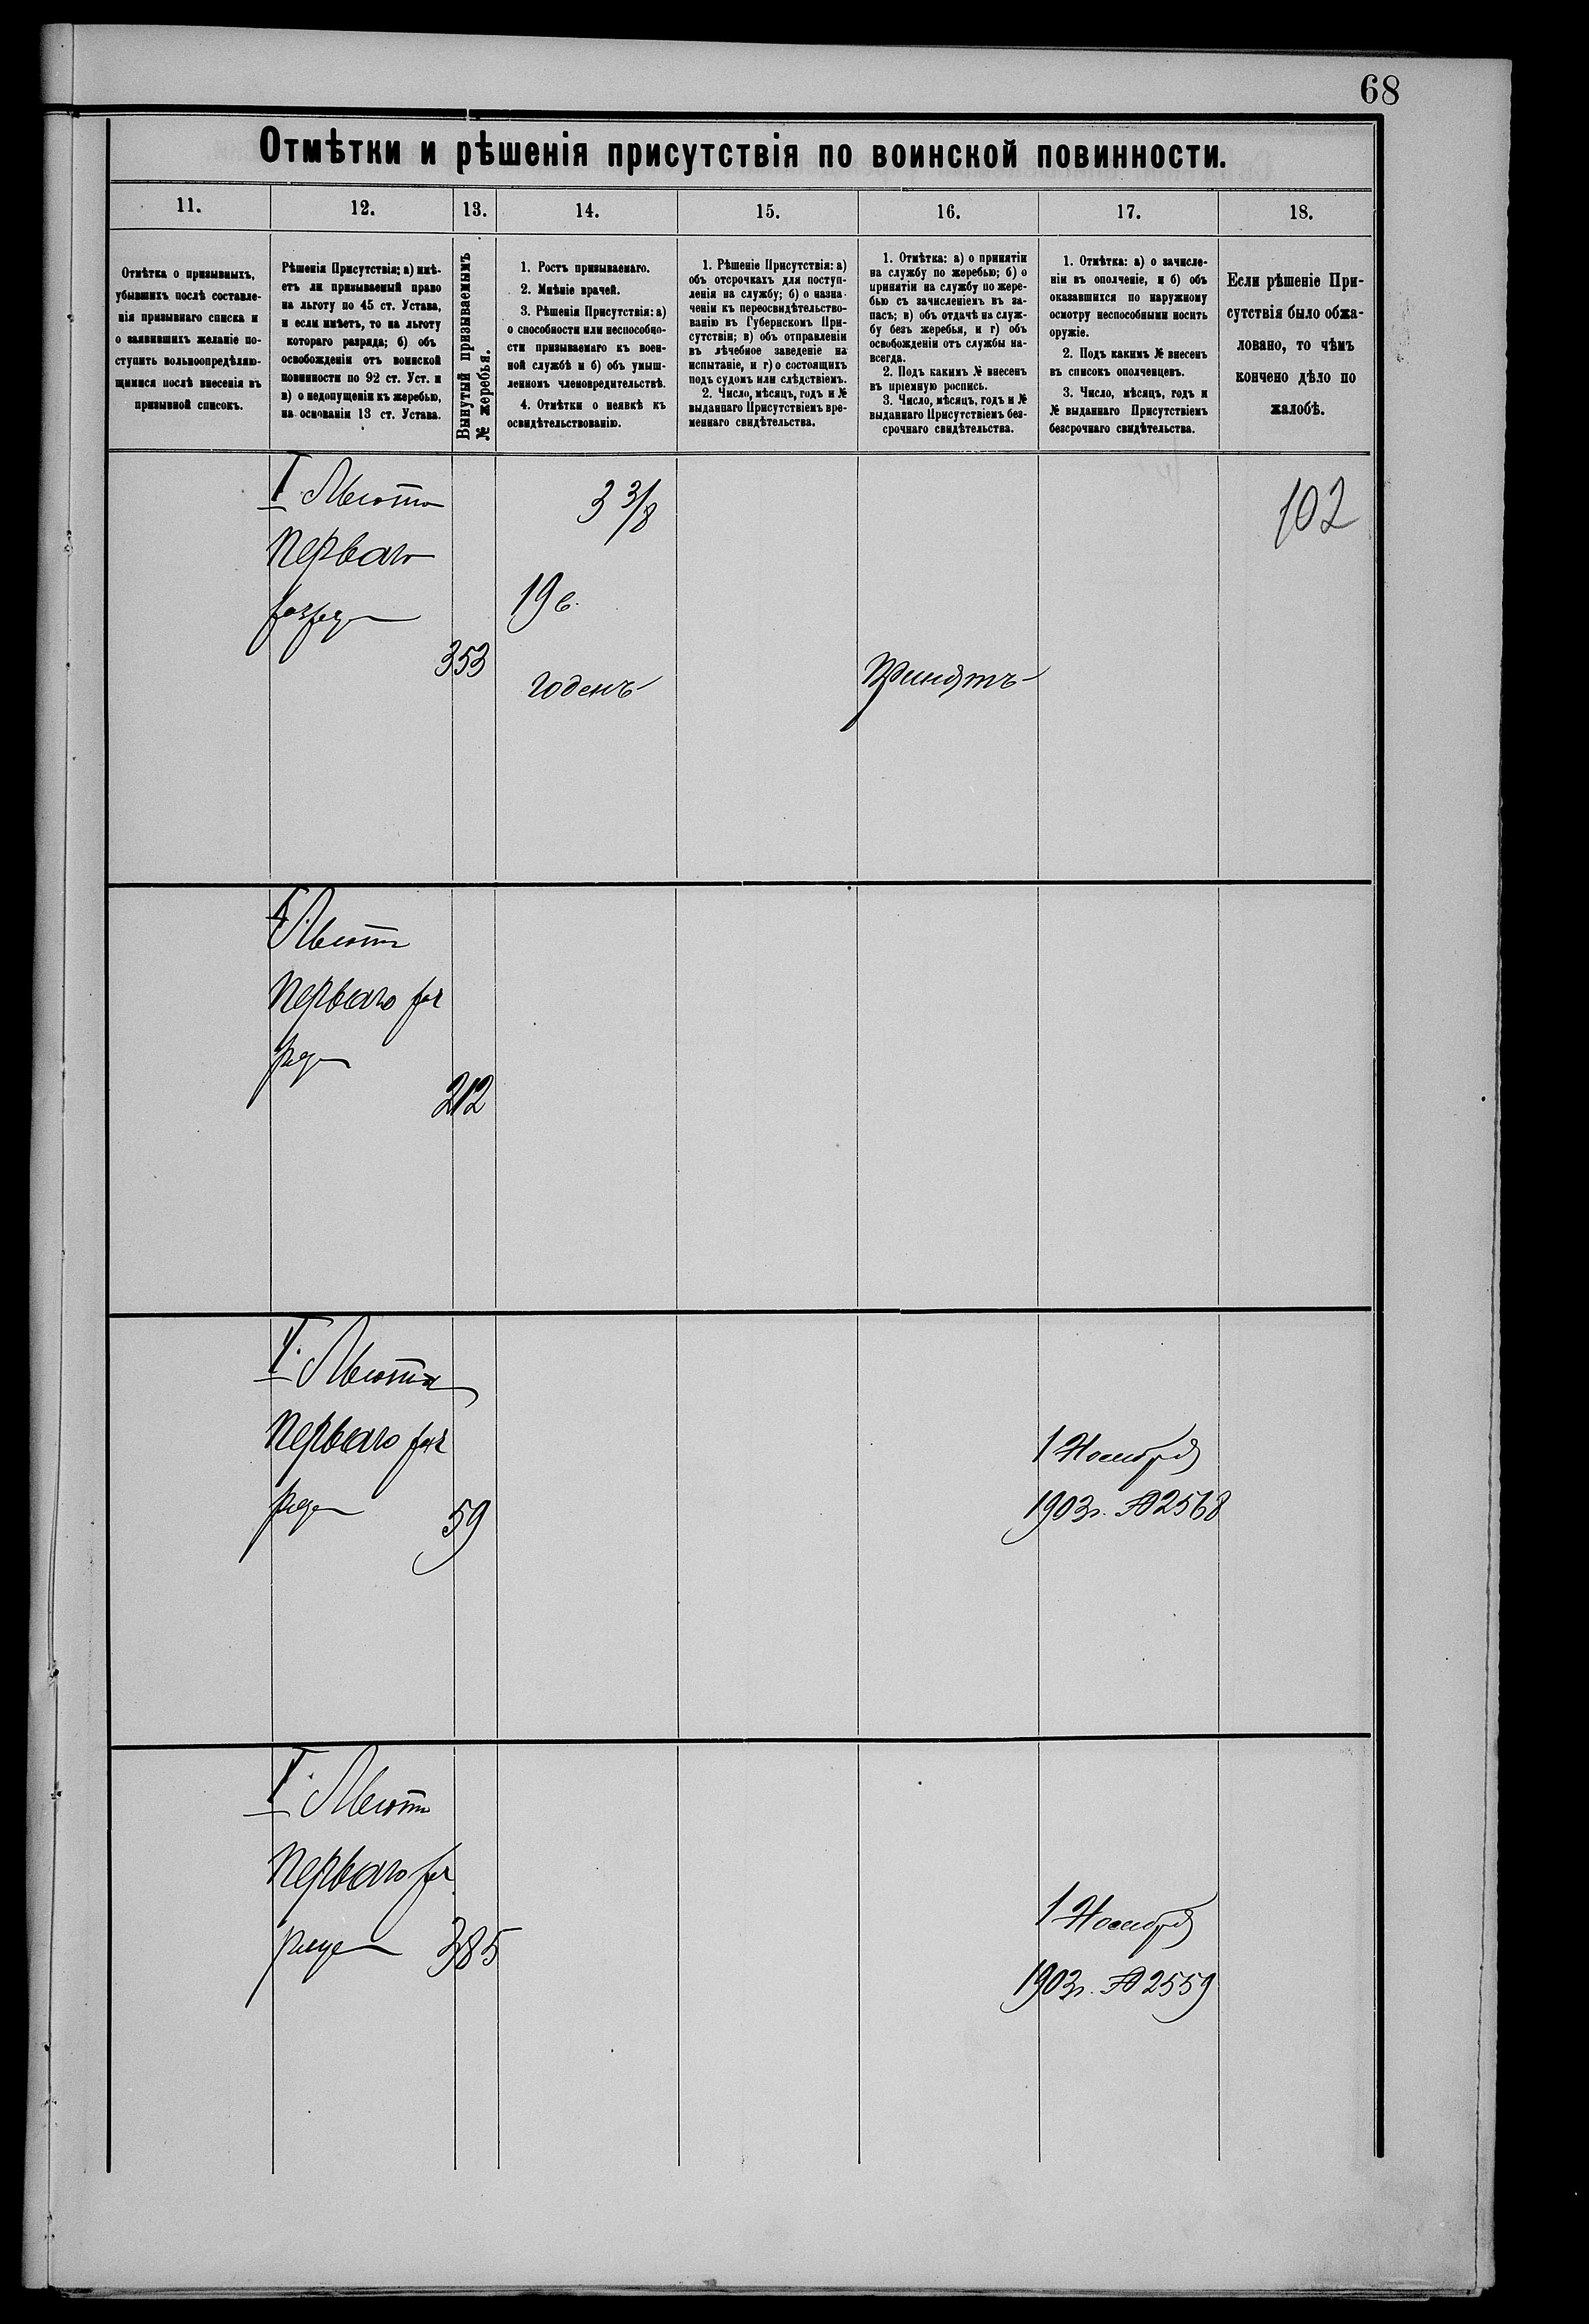 68
Отмѣтки и рѣшенія присутствія по воинской повинности.
11.
12.
13.
14.
15.
16.
17.
18.
Отмѣтка о призывныхъ,
убывшихъ послѣ составле-
нія призывнаго списка и
о заявившихъ желаніе по-
ступить вольноопредѣляю-
щимися послѣ внесенія въ
призывной списокъ.
Рѣшенія Присутствія: а) имѣ-
етъ ли призываемый право
на льготу по 45 ст. Устава,
и если имѣетъ, то на льготу
котораго разряда; б) объ
освобожденіи отъ воинской
повинности по 92 ст. Уст. и
в) о недопущеніи къ жеребью,
на основаніи 13 ст. Устава.
Вынутый призываемымъ
№ жеребья.
1. Ростъ призываемаго.
2. Мнѣніе врачей.
3. Рѣшенія Присутствія: а)
о способности или неспособно-
сти призываемаго къ воен-
ной службѣ и б) объ умыш-
ленномъ членовредительствѣ.
4. Отмѣтки о неявкѣ къ
освидѣтельствованію.
1. Рѣшеніе Присутствія: а)
объ отсрочкахъ для поступ-
ленія на службу; б) о назна-
ченіи къ переосвидѣтельство-
ванію въ Губернскомъ При-
сутствіи; в) объ отправленіи
въ лѣчебное заведеніе на
испытаніе, и г) о состоящихъ
подъ судомъ или слѣдствіемъ.
2. Число, мѣсяцъ, годъ и №
выданнаго Присутствіемъ вре-
меннаго свидѣтельства.
1. Отмѣтка: а) о принятіи
на службу по жеребью; б) о
принятіи на службу по жере-
бью съ зачисленіемъ въ за-
пасъ; в) объ отдачѣ на служ-
бу безъ жеребья, и г) объ
освобожденіи отъ службы на-
всегда.
2. Подъ какимъ № внесенъ
въ пріемную роспись.
3. Число, мѣсяцъ, годъ и №
выданнаго Присутствіемъ без-
срочнаго свидѣтельства.
1. Отмѣтка: а) о зачисле-
ніи въ ополченіе, и б) объ
оказавшихся по наружному
осмотру неспособными носить
оружіе.
2. Подъ какимъ № внесенъ
въ списокъ ополченцевъ.
3. Число, мѣсяцъ, годъ и
№ выданнаго Присутствіемъ
безсрочнаго свидѣтельства.
Если рѣшеніе При-
сутствія было обжа-
ловано, то чѣмъ
кончено дѣло по
жалобѣ.
I Льгота
перваго
разряда
353
3 3/8
19 в.
годенъ
Принятъ
102
I Льгота
перваго раз
ряда
212
I. Льгота
перваго раз
ряда
59
1 Ноября
1903г. № 2568
I. Льгота
перваго раз
ряда
385
1 Ноября
1903г. № 2559